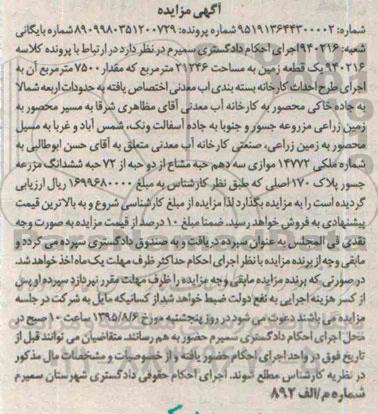 آگهی مزایده
شماره: ۹۵۱۹۱۳۶۴۴۳۰۰۰۰۲ شماره پرونده: ۸۹۰۹۹۸۰۳۵۱۲۰۰۷۲۹ شماره بایگانی
شعبه: ۹۴۰۲۱۶ اجرای احکام دادگستری سمیرم در نظر دارد در ارتباط با پرونده کلاسه
۹۴۰۲۱۶ یک قطعه زمین به مساحت ۲۱۲۴۶ مترمربع که مقدار ۷۵۰۰ مترمربع آن به
اجرای طرح احداث کارخانه بسته بندی آب معدنی اختصاص یافته به حدودات اربعه شمالا
به جاده خاکی محصور به کارخانه آب معدنی آقای مظاهری شرقا به مسیر محصور به
زمین زراعی مزروعه جسور و جنوبا به جاده آسفالت ونک، شمس آباد و غربا به مسیل
محصور به زمین زراعی، صنعتی کارخانه آب معدنی متعلق به آقای حسن ابوطالبی به
شماره ملکی ۱۴۷۷۲ موازی سه دهم حبه مشاع از دو حبه از ۷۲ حبه ششدانگ مزرعه
جسور پلاک ۱۷۰ اصلی که طبق نظر کارشناس به مبلغ ۱۶۹۹۶۸۰۰۰۰ ریال ارزیابی
گردیده است را به مزایده بگذارد لذا مزایده از مبلغ کارشناسی شروع و به بالاترین قیمت
پیشنهادی به فروش خواهد رسید. ضمنا مبلغ ۱۰ درصد از قیمت مزایده به صورت وجه
نقدی فی المجلس به عنوان سپرده دریافت و به صندوق دادگستری سپرده می گردد و
مابقی وجه از برنده مزایده با نظر اجرای احکام حداکثر ظرف مهلت یک ماه اخذ خواهد شد.
در صورتی که برنده مزایده مابقی وجه مزایده را ظرف مهلت مقرر نپردازد سپرده او پس
از کسر هزینه اجرایی به نفع دولت ضبط خواهد شد از کسانیکه مایل به شرکت در جلسه
مزایده می باشند دعوت می شود در روز پنجشنبه مورخ ۱۳۹۵/۸/۶ ساعت ۱۰ صبح در
محل اجرای احکام دادگستری سمیرم حضور به هم رسانند. متقاضیان می توانند قبل از
تاریخ فوق در واحد اجرای احکام حضور یافته و از خصوصیات و مشخصات مال مذکور
در نظریه کارشناس مطلع شوند. اجرای احکام حقوقی دادگستری شهرستان سمیرم
شماره م/الف ۸۹۲